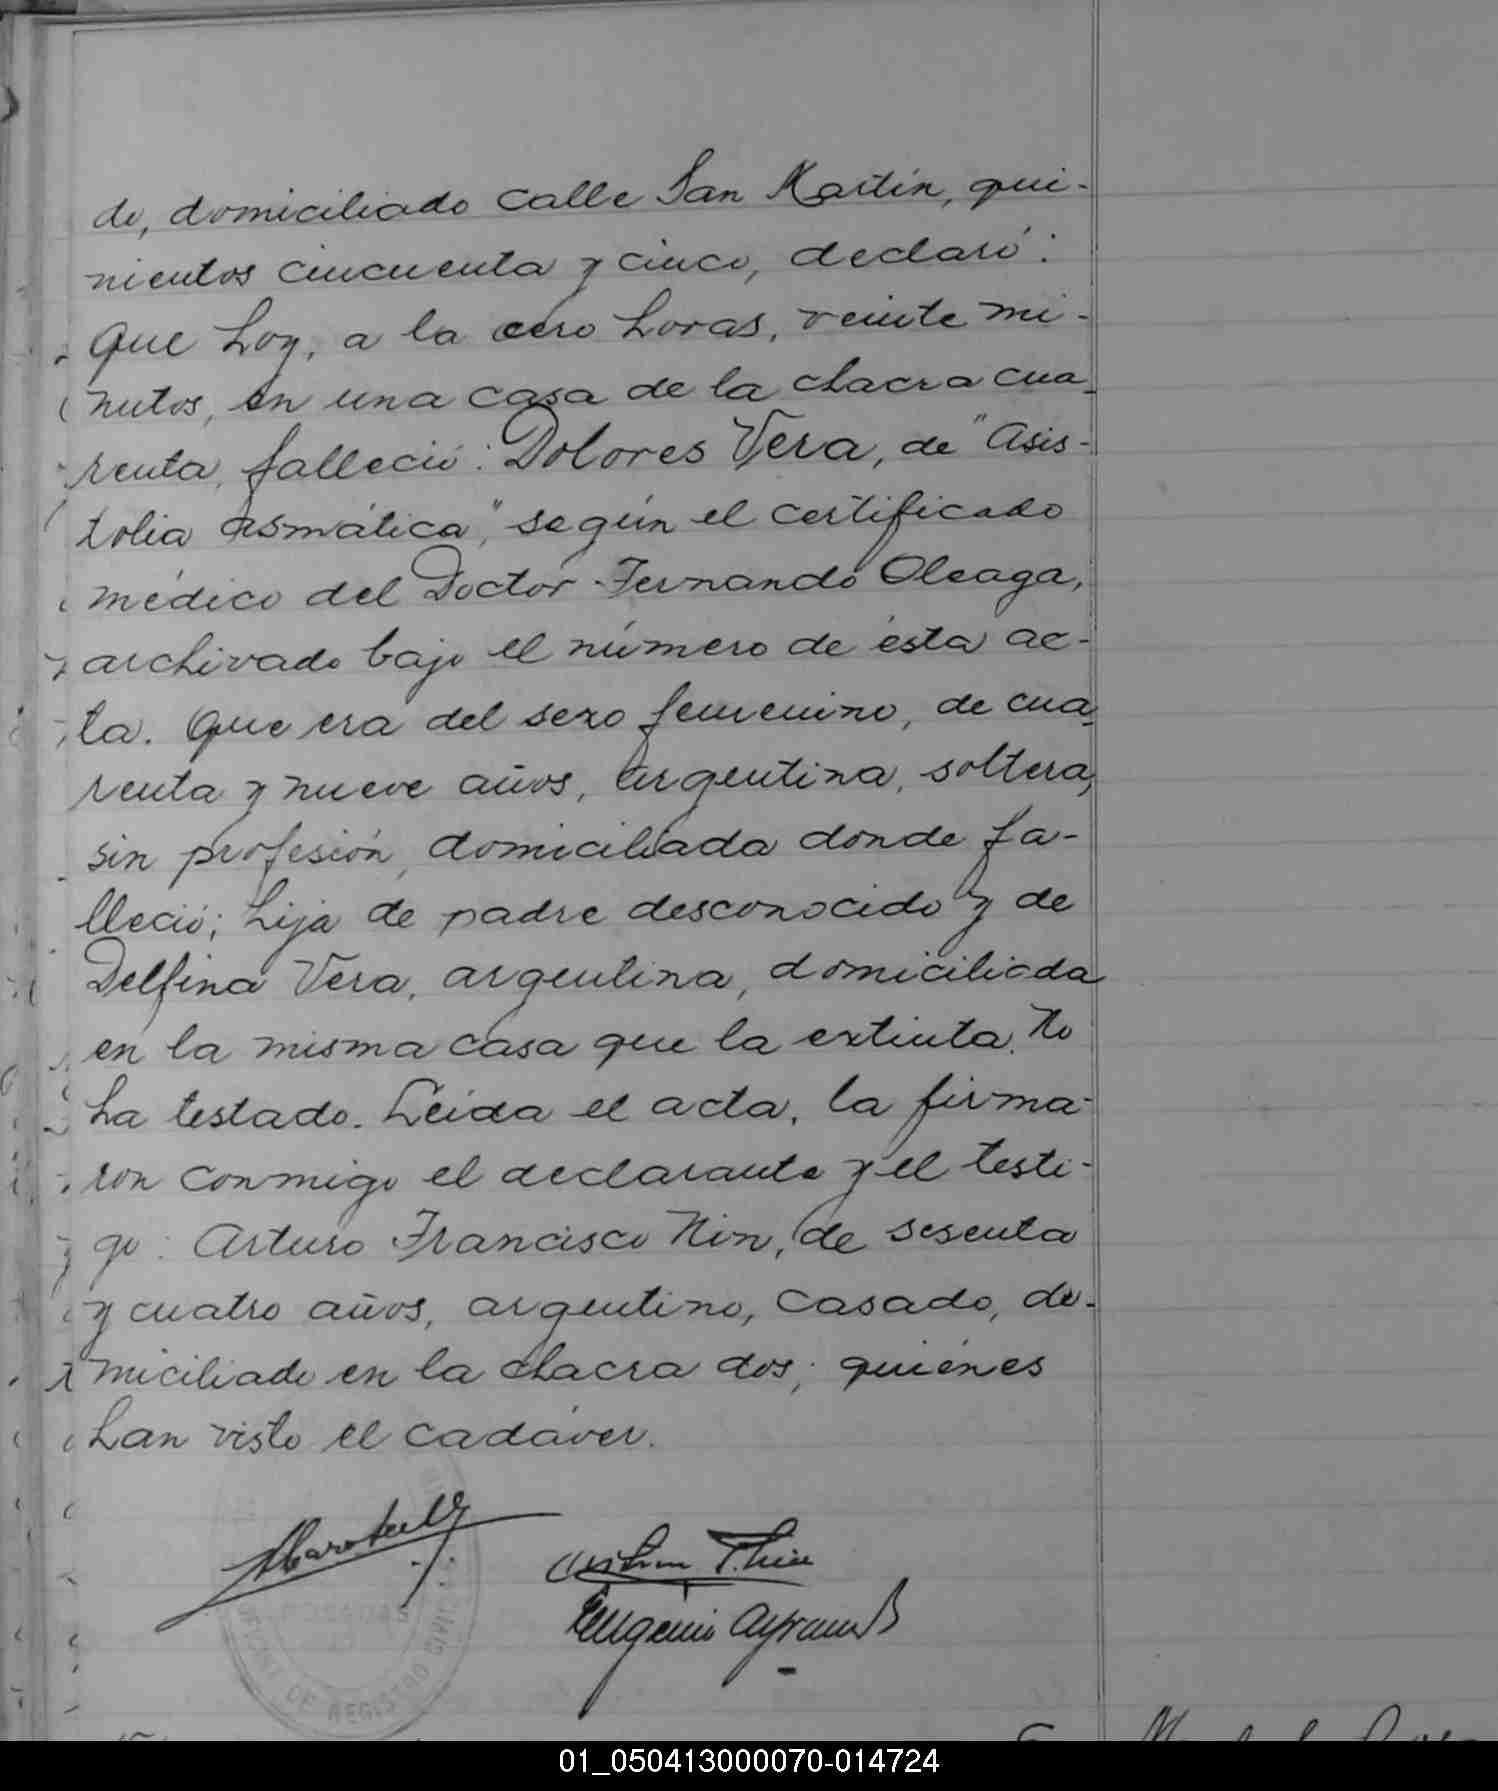 do, domiciliado calle San Martín, qui-
nientos cincuenta y cinco, declaró:
Que hoy, a la cero horas, veinte mi-
nutos, en una casa de la chacra cua-
renta, falleció: Dolores Vera, de "Asis-
tolia asmática", según el certificado
médico del Doctor Fernando Oleaga,
archivado bajo el número de ésta ac-
ta. Que era del sexo femenino, de cua-
renta y nueve años, argentina, soltera,
sin profesión, domiciliada donde fa-
lleció; hija de padre desconocido y de
Delfina Vera, argentina, domiciliada
en la misma casa que la extinta. No
ha testado. Leida el acta, la firma-
ron conmigo el declarante y el testi-
go: Arturo Francisco Nin, de sesenta
y cuatro años, argentino, casado, do-
miciliado en la chacra dos; quiénes
han visto el cadáver.
Eugenio
DE REGISTRO CIVIL
01_050413000070-014724